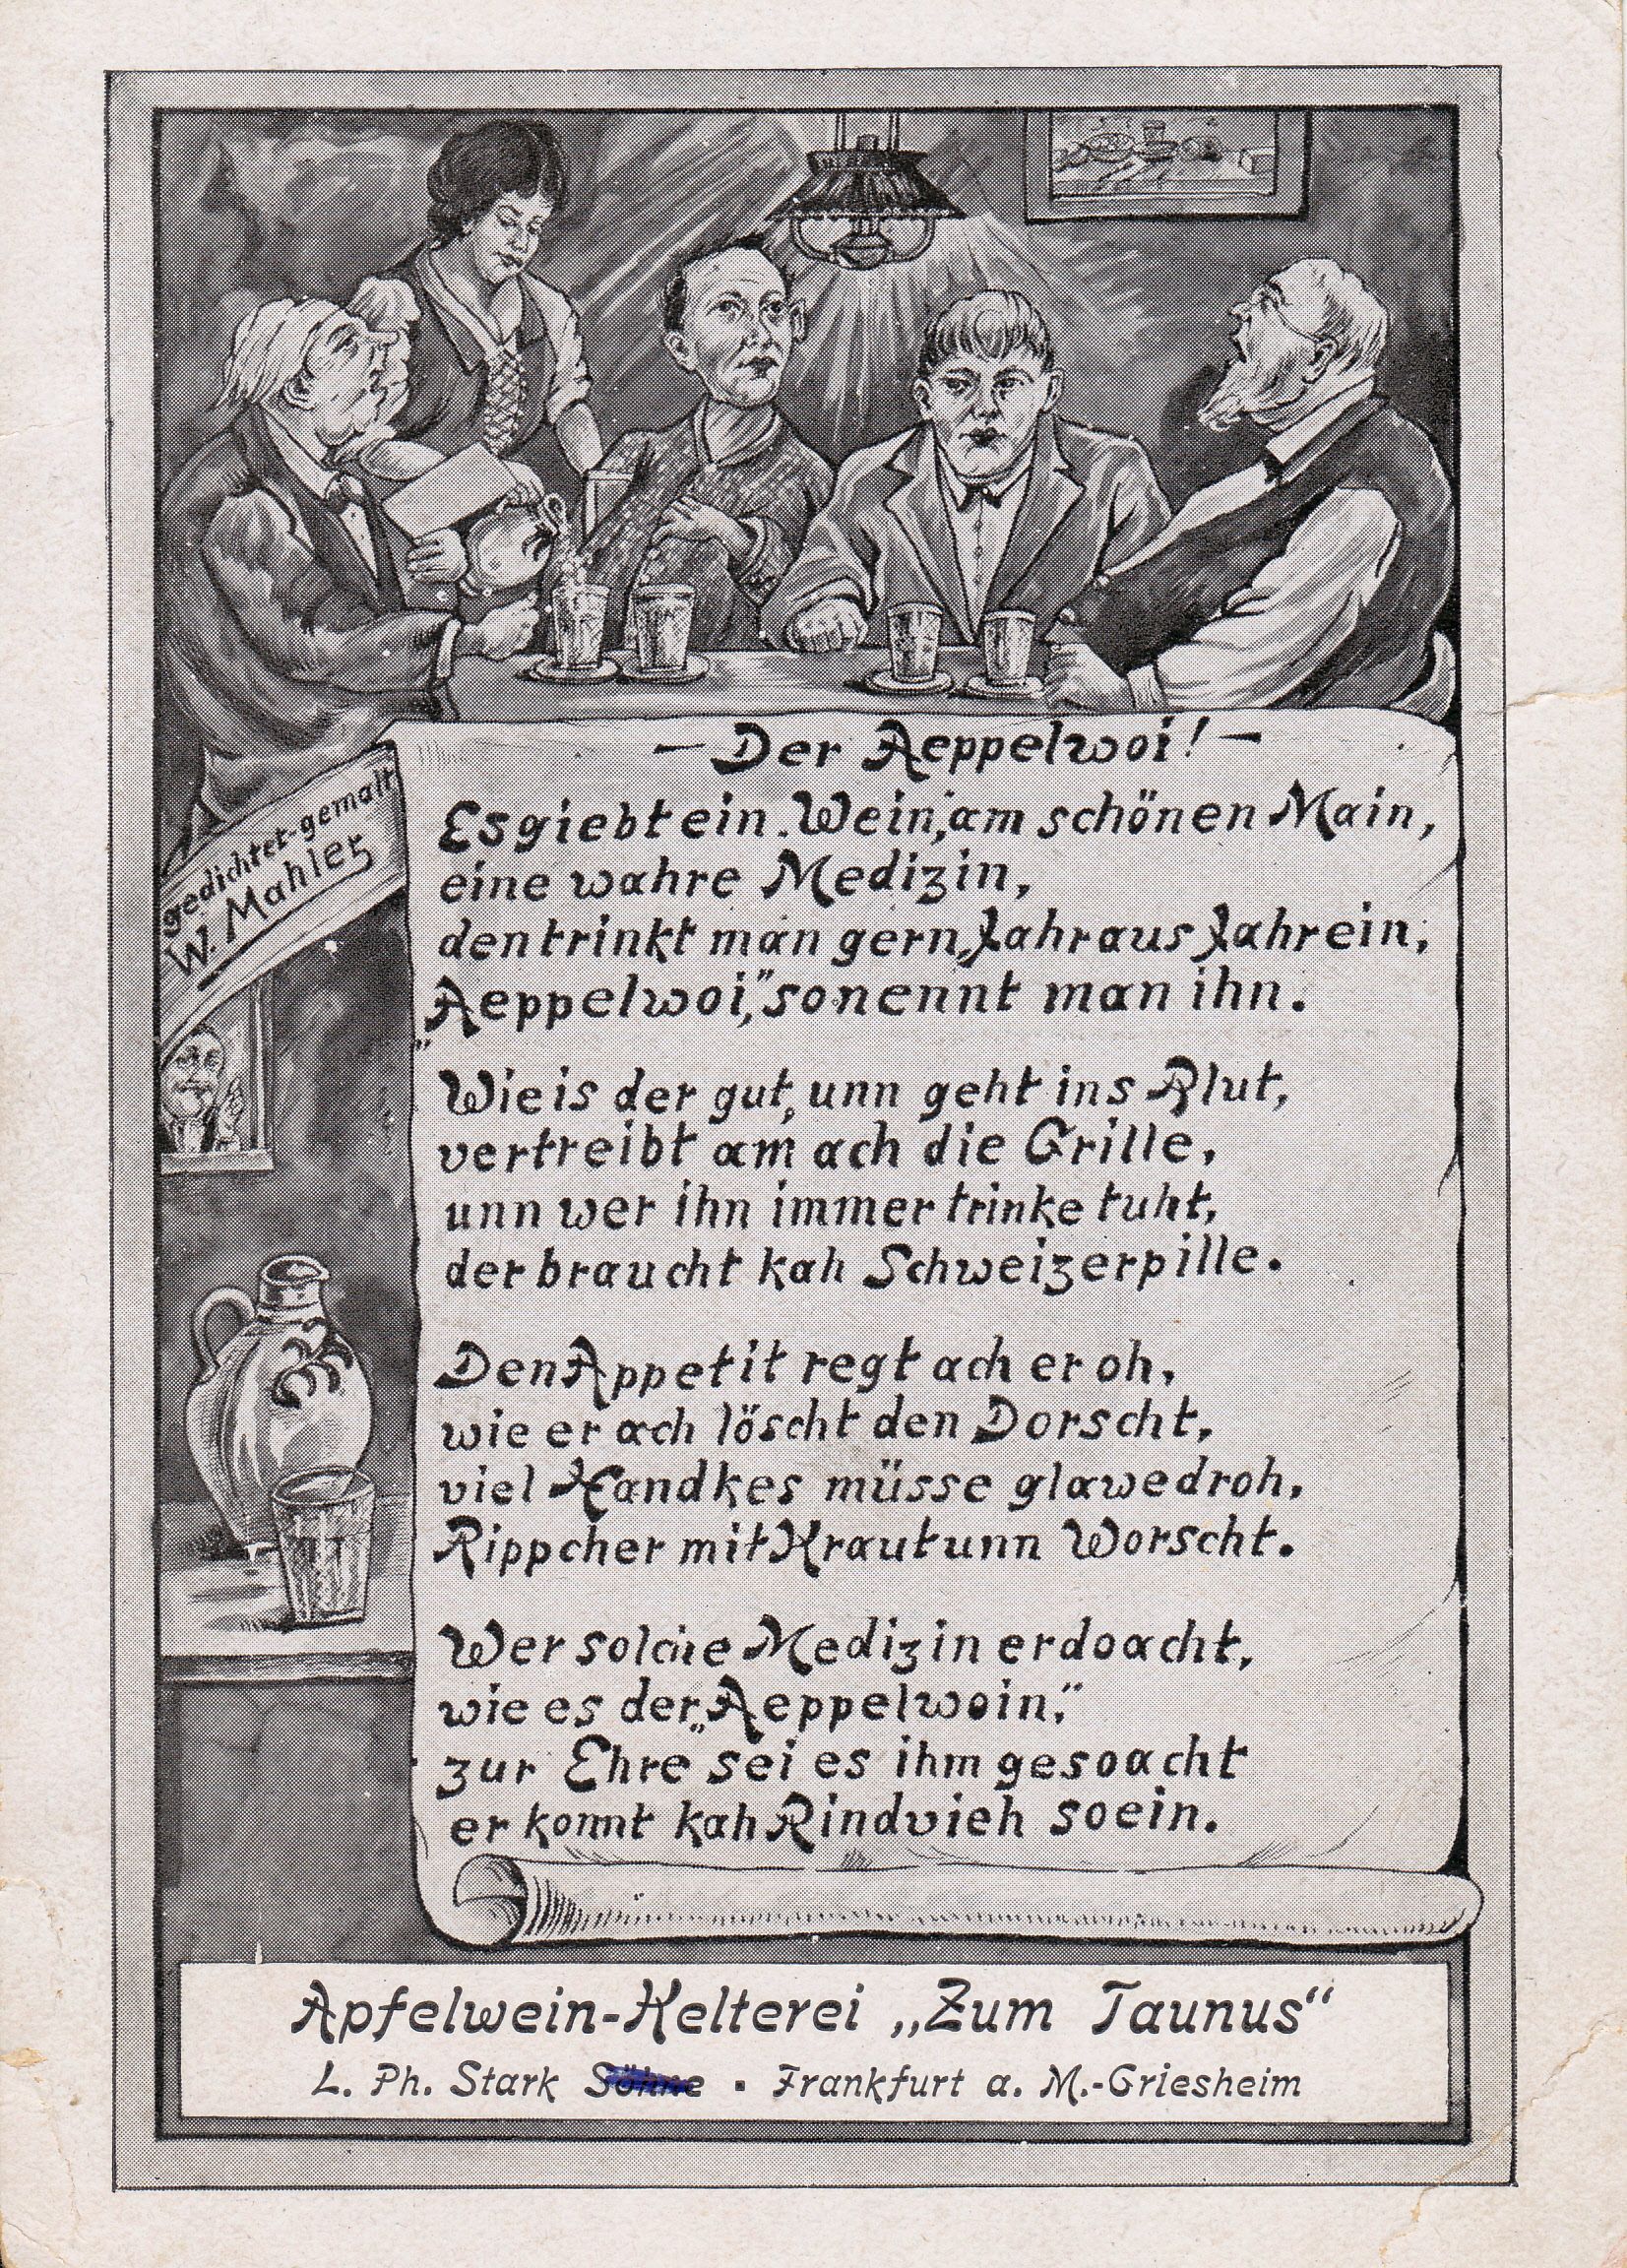 — Der Aeppelwoi! —
Es giebt ein Wein, am schönen Main,
eine wahre Medizin,
den trinkt man gern, Jahraus Jahrein,
„Aeppelwoi," so nennt man ihn.
Wie is der gut, unn geht ins Blut,
vertreibt am ach die Grille,
unn wer ihn immer trinke tuht,
der braucht kah Schweizerpille.
Den Appetit regt ach er oh,
wie er ach löscht den Dorscht,
viel Handkes müsse glawe droh,
Rippcher mit Kraut unn Worscht.
Wer solche Medizin erdoacht,
wie es der „Aeppelwoin,"
zur Ehre sei es ihm gesoacht
er konnt kah Rindvieh soein.
gedichtet-gemalt
W. Mahler
Apfelwein-Kelterei „Zum Taunus"
L. Ph. Stark Söhne ▪ Frankfurt a. M.-Griesheim